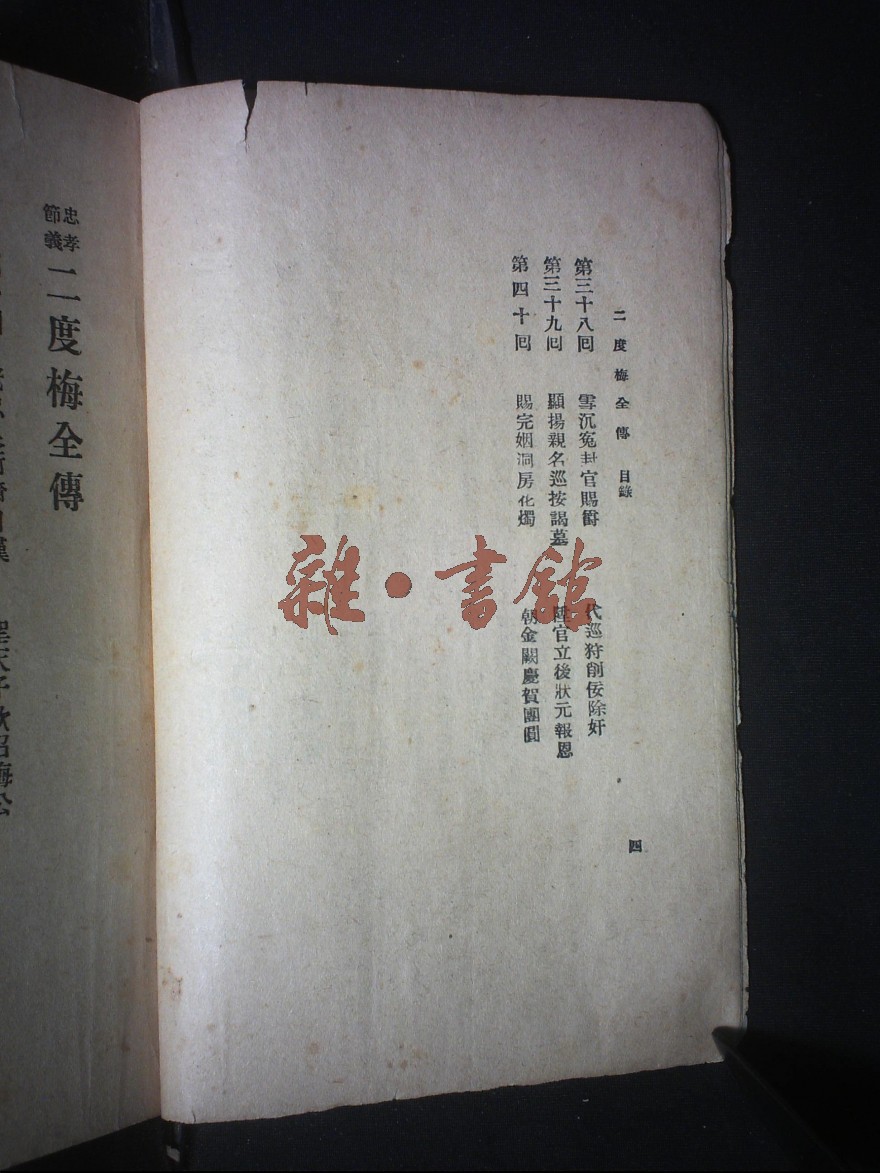 二度梅全傳 目錄
第三十八囘 雪沉冤封官賜爵 代巡狩削佞除奸
第三十九囘 顯揚親名巡按謁墓 陞官立後狀元報恩
第四十囘 賜完姻洞房化燭 朝金闕慶賀團圓
四
雜·書館
忠孝節義二度梅全傳